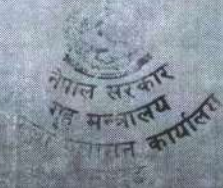 नेपाल सरकार
गृह मन्त्रालय
कार्यालय